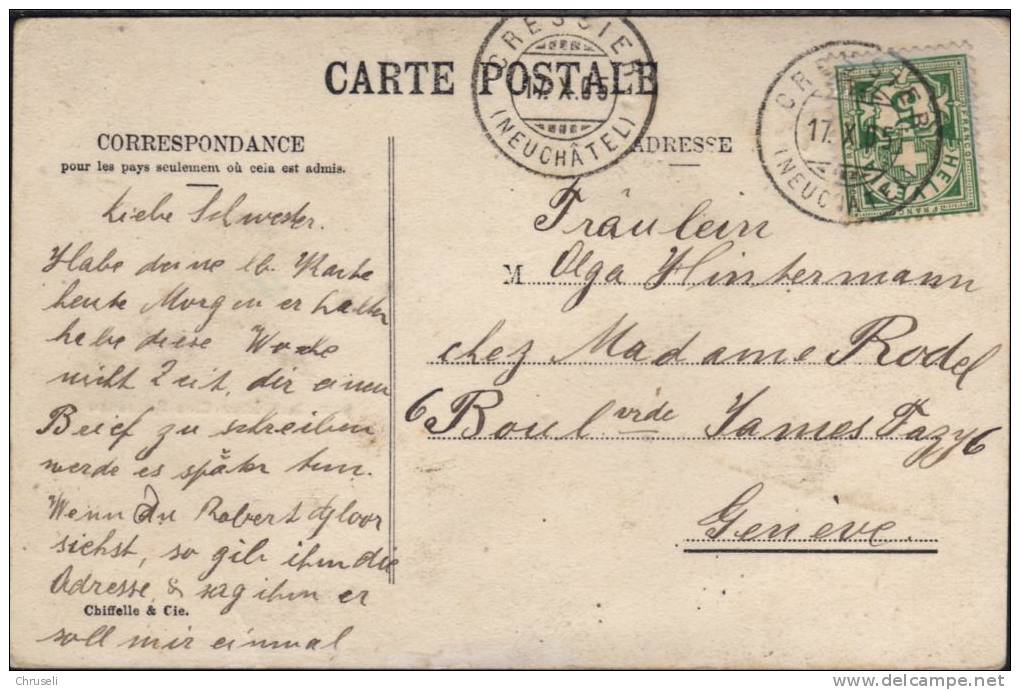 CARTE POSTALE
CRESSIER
17. X. 05
(NEUCHÂTEL)
CRESSIER
17. X. 05
(NEUCHÂTEL)
HELVETIA
FRANCO
5
CORRESPONDANCE
pour les pays seulement où cela est admis.
Liebe Schwester.
Habe deine lb. Karte
heute Morgen erhalten
habe diese Woche
nicht Zeit, dir einen
Brief zu schreiben
werde es später tun.
Wenn du Robert Gloor
siehst, so gib ihm die
Adresse, & sag ihm er
Chiffelle & Cie.
soll mir einmal
ADRESSE
Fräulein
M Olga Hintermann
chez Madame Rodel
6 Boulvrde James Fazy 6
Genève.
Chruseli
delcampe.net